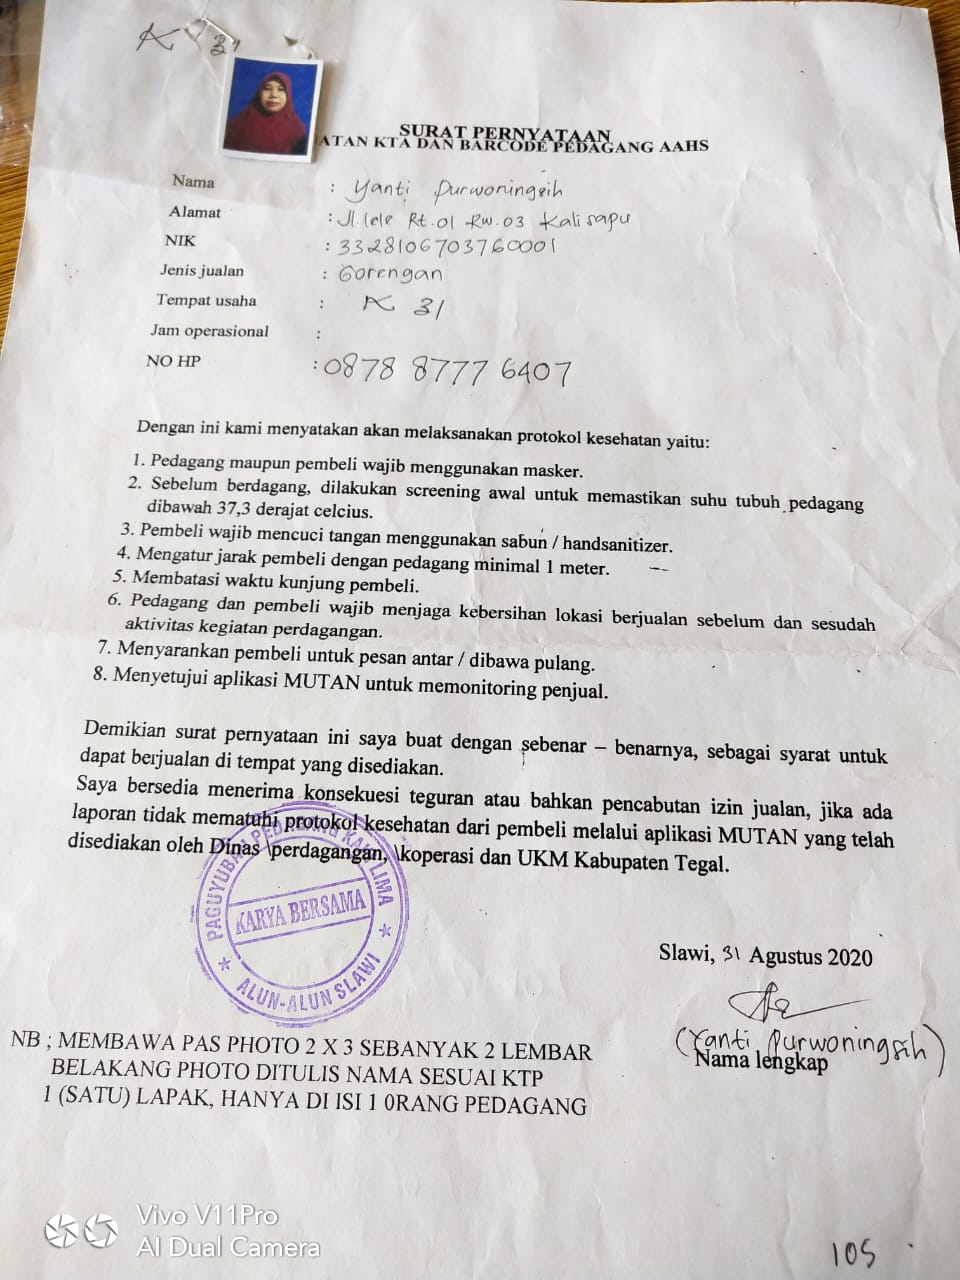 K 31
SURAT PERNYATAAN
ATAN KTA DAN BARCODE PEDAGANG AAHS
Nama : Yanti Purwoningsih
Alamat : Jl. lele Rt.01 Rw.03 Kalisapu
NIK : 3328106703760001
Jenis jualan : Gorengan
Tempat usaha : K 31
Jam operasional :
NO HP : 0878 8777 6407
Dengan ini kami menyatakan akan melaksanakan protokol kesehatan yaitu:
1. Pedagang maupun pembeli wajib menggunakan masker.
2. Sebelum berdagang, dilakukan screening awal untuk memastikan suhu tubuh pedagang
dibawah 37,3 derajat celcius.
3. Pembeli wajib mencuci tangan menggunakan sabun / handsanitizer.
4. Mengatur jarak pembeli dengan pedagang minimal 1 meter.
5. Membatasi waktu kunjung pembeli.
6. Pedagang dan pembeli wajib menjaga kebersihan lokasi berjualan sebelum dan sesudah
aktivitas kegiatan perdagangan.
7. Menyarankan pembeli untuk pesan antar / dibawa pulang.
8. Menyetujui aplikasi MUTAN untuk memonitoring penjual.
Demikian surat pernyataan ini saya buat dengan sebenar – benarnya, sebagai syarat untuk
dapat berjualan di tempat yang disediakan.
Saya bersedia menerima konsekuesi teguran atau bahkan pencabutan izin jualan, jika ada
laporan tidak mematuhi protokol kesehatan dari pembeli melalui aplikasi MUTAN yang telah
disediakan oleh Dinas \perdagangan, \koperasi dan UKM Kabupaten Tegal.
PAGUYUBAN PEDAGANG KAKI LIMA
KARYA BERSAMA
ALUN-ALUN SLAWI
Slawi, 31 Agustus 2020
(Yanti Purwoningsih)
Nama lengkap
NB ; MEMBAWA PAS PHOTO 2 X 3 SEBANYAK 2 LEMBAR
BELAKANG PHOTO DITULIS NAMA SESUAI KTP
1 (SATU) LAPAK, HANYA DI ISI 1 0RANG PEDAGANG
Vivo V11Pro
AI Dual Camera
105